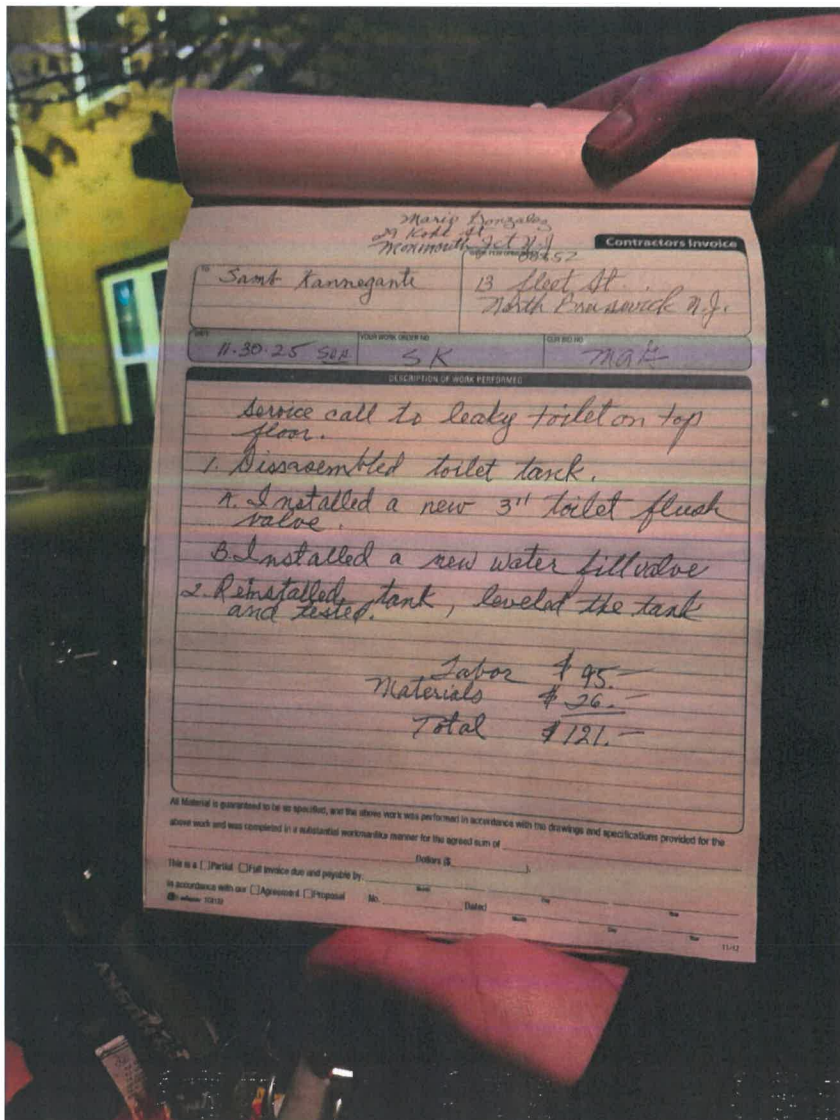 Mario Gonzalez
Kohl St
Monmouth Jct N.J
Contractors Invoice
WORK PERFORMED AT
08852
TO
Samb Kannegante
13 fleet St.
North Brunswick N.J.
DATE
YOUR WORK ORDER NO.
OUR BID NO.
11-30-25
SK
DESCRIPTION OF WORK PERFORMED
Service call to leaky toilet on top
floor.
1. Dissasembled toilet tanck.
A. Installed a new 3" toilet flush
valve.
B. Installed a new water fill valve
2. Reinstalled tank, leveled the tank
and tested.
Labor $95.—
Materials $26.—
Total $121.—
All Material is guaranteed to be as specified, and the above work was performed in accordance with the drawings and specifications provided for the
above work and was completed in a substantial workmanlike manner for the agreed sum of
Dollars ($ ).
This is a ☐ Partial ☐ Full invoice due and payable by:
Month Day Year
in accordance with our ☐ Agreement ☐ Proposal No. Dated
Month Day Year
11-12